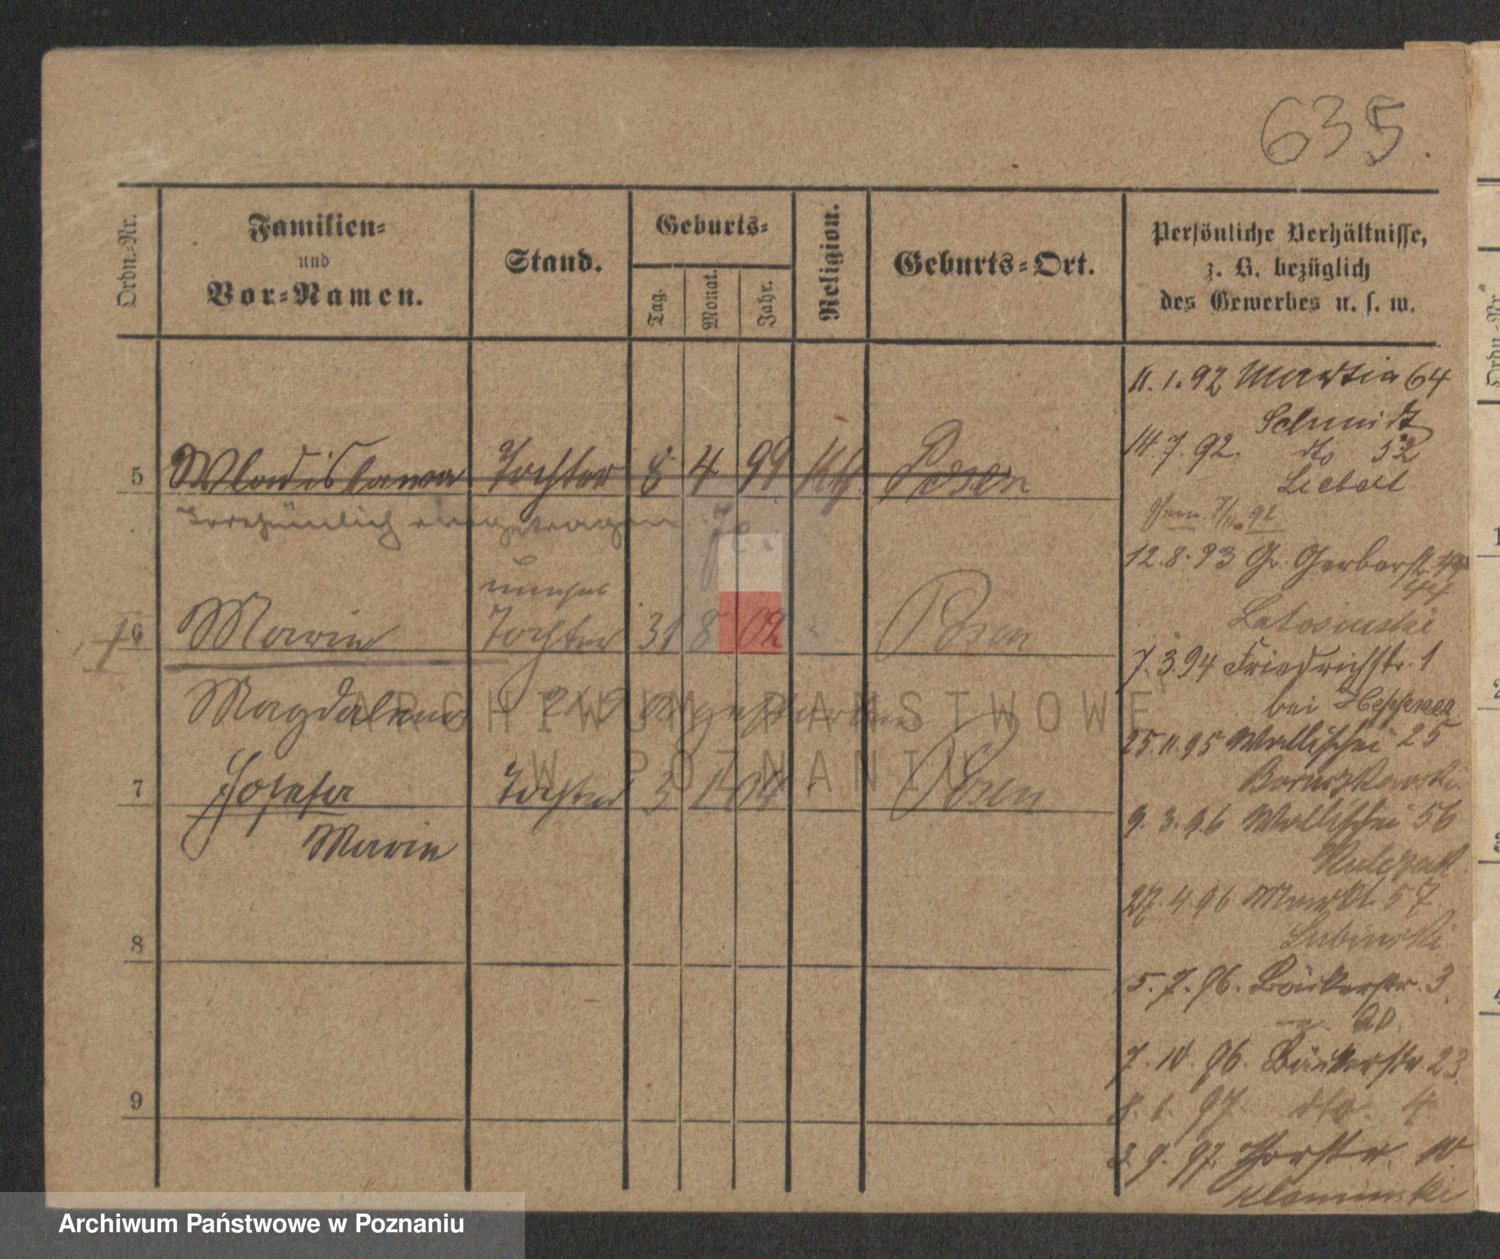 635.
Ordn.-Nr.
Familien-
und
Vor-Namen.
Stand.
Geburts-
Tag.
Monat.
Jahr.
Religion.
Geburts-Ort.
Persönliche Verhältnisse,
z. B. bezüglich
des Gewerbes u. s. w.
5 Wladislawa Tochter 8 4 99 kth Posen
irrthümlich eingetragen
unehel
6 Marie Tochter 31 8 02 Posen
Magdalena
7 Josefa Tochter 3 1 04 Posen
Marie
8
9
11.1.92 Martin 64
Schmidt
14.7.92. dto 52
Liebelt
12.8.93 Gr. Gerberstr.
44
Latosinski
7.3.94 Friedrichstr. 1
bei
25.11.95 Wallischei 25
9.3.96 Wallischei 56
27.4.96 Markt 57
Lubinski
5.7.96. Bäckerstr. 3
7.10.96. Bäckerstr. 23.
8.1.97. dto. 4
2.9.97. Thorstr. 10
Kaminski
ARCHIWUM PAŃSTWOWE
W POZNANIU
Archiwum Państwowe w Poznaniu
Ordn.-Nr.
1
2
3
4